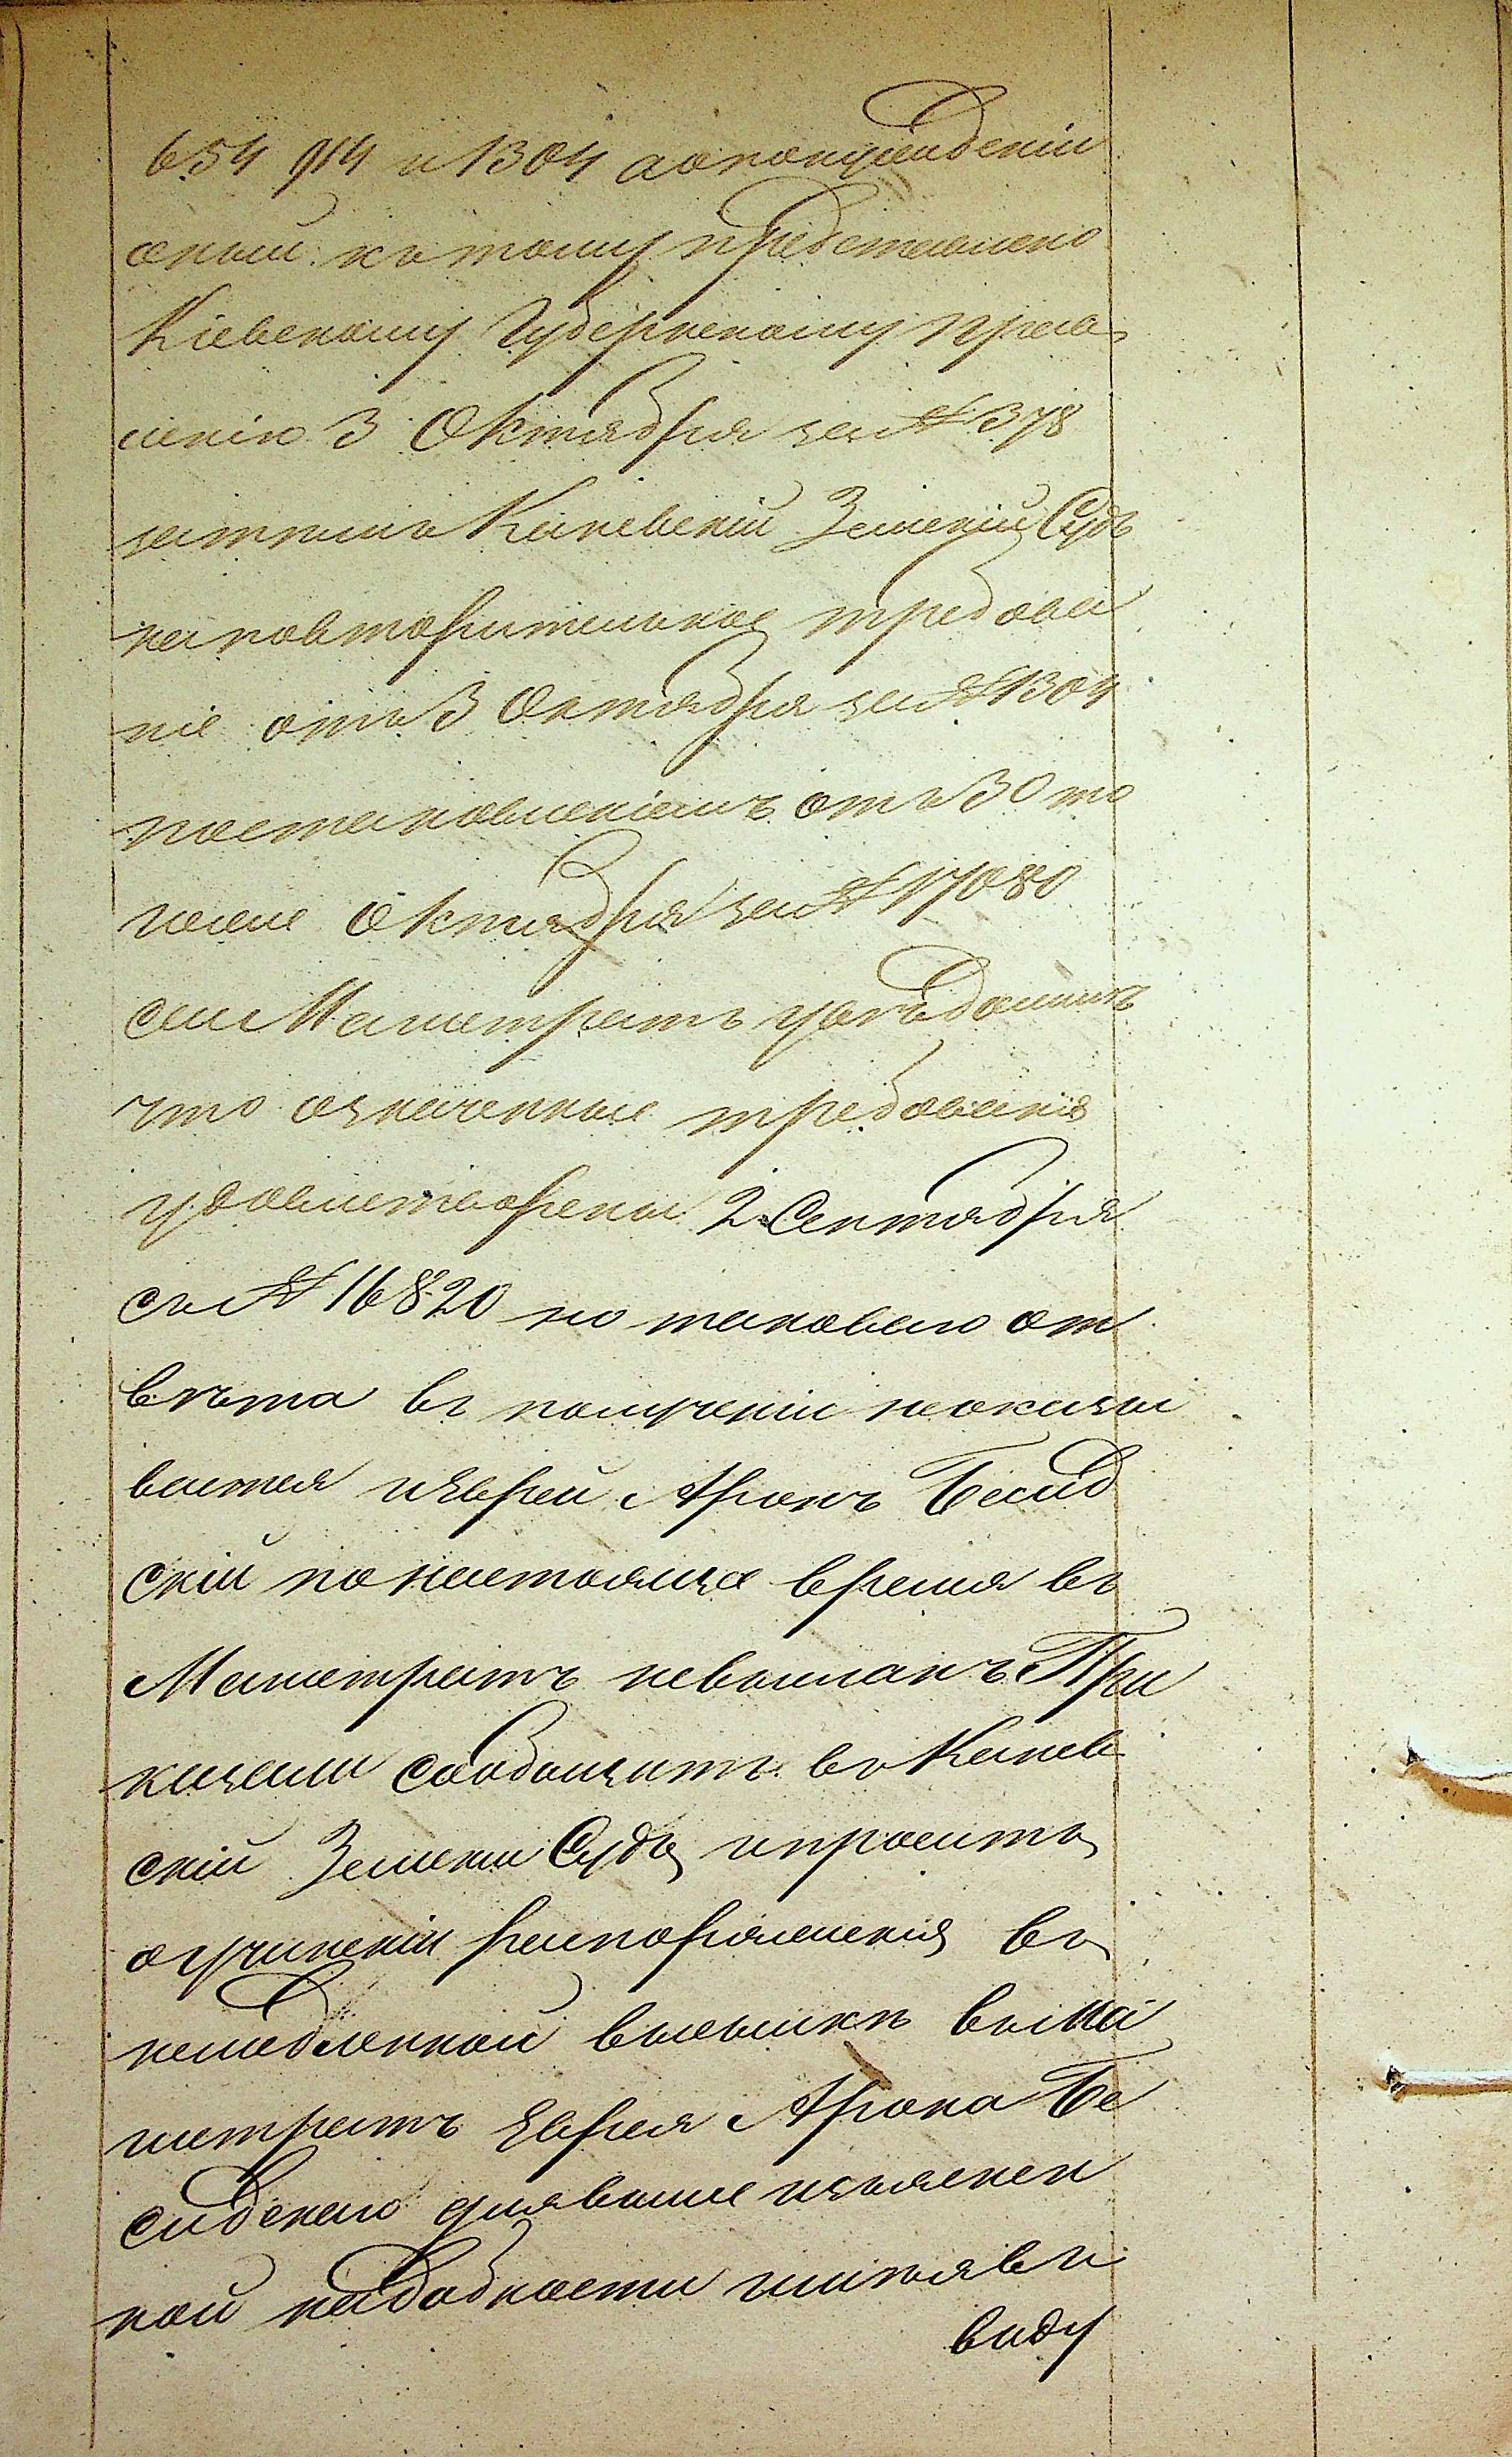 654 914 и 1304 а о понуждении
оный къ тому представлено
Кіевскому Губернскому Прав
ленію 3 Октября за № 378
затемъ Каневскій Земскій Судъ
на повторительное требова
ніе отъ 3 Октября за № 1304
постановленіемъ отъ 30 то
гоже Октября за № 17080
сей Магистратъ увѣдомилъ
что означенные требованія
удовлетворены 2 Сентября
съ № 16820 но таковаго от
вѣта въ полученіи неоказы
вается и Еврей Аронъ Бесид
скій по настоящее время въ
Магистратъ невысланъ При
казали сообщить въ Канев
скій Земскій Судъ и просить
о учиненіи распоряженія въ
немедленной высылкѣ въ Ма
гистратъ Еврея Арона Бе
сидскаго для выше изъяснен
ной надобности имѣя въ
виду